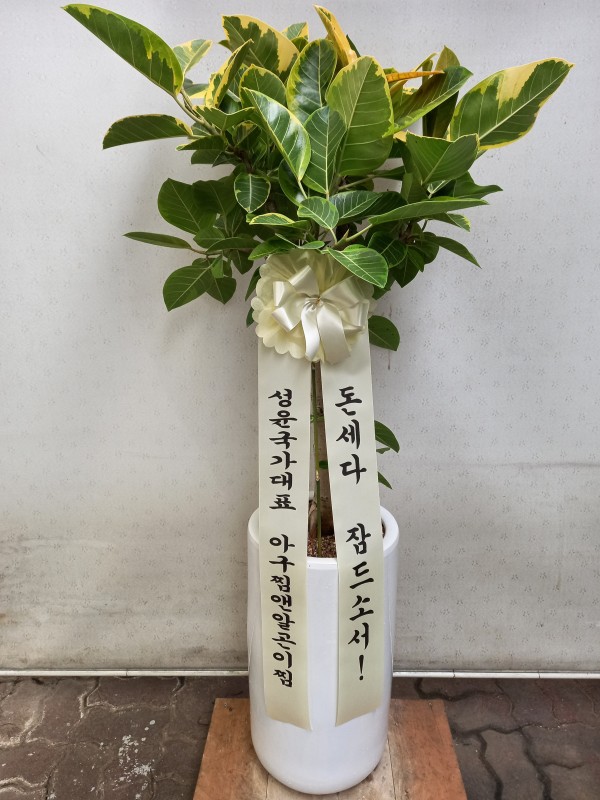 돈세다 잠드소서!
성윤국가대표 아구찜앤알곤이찜